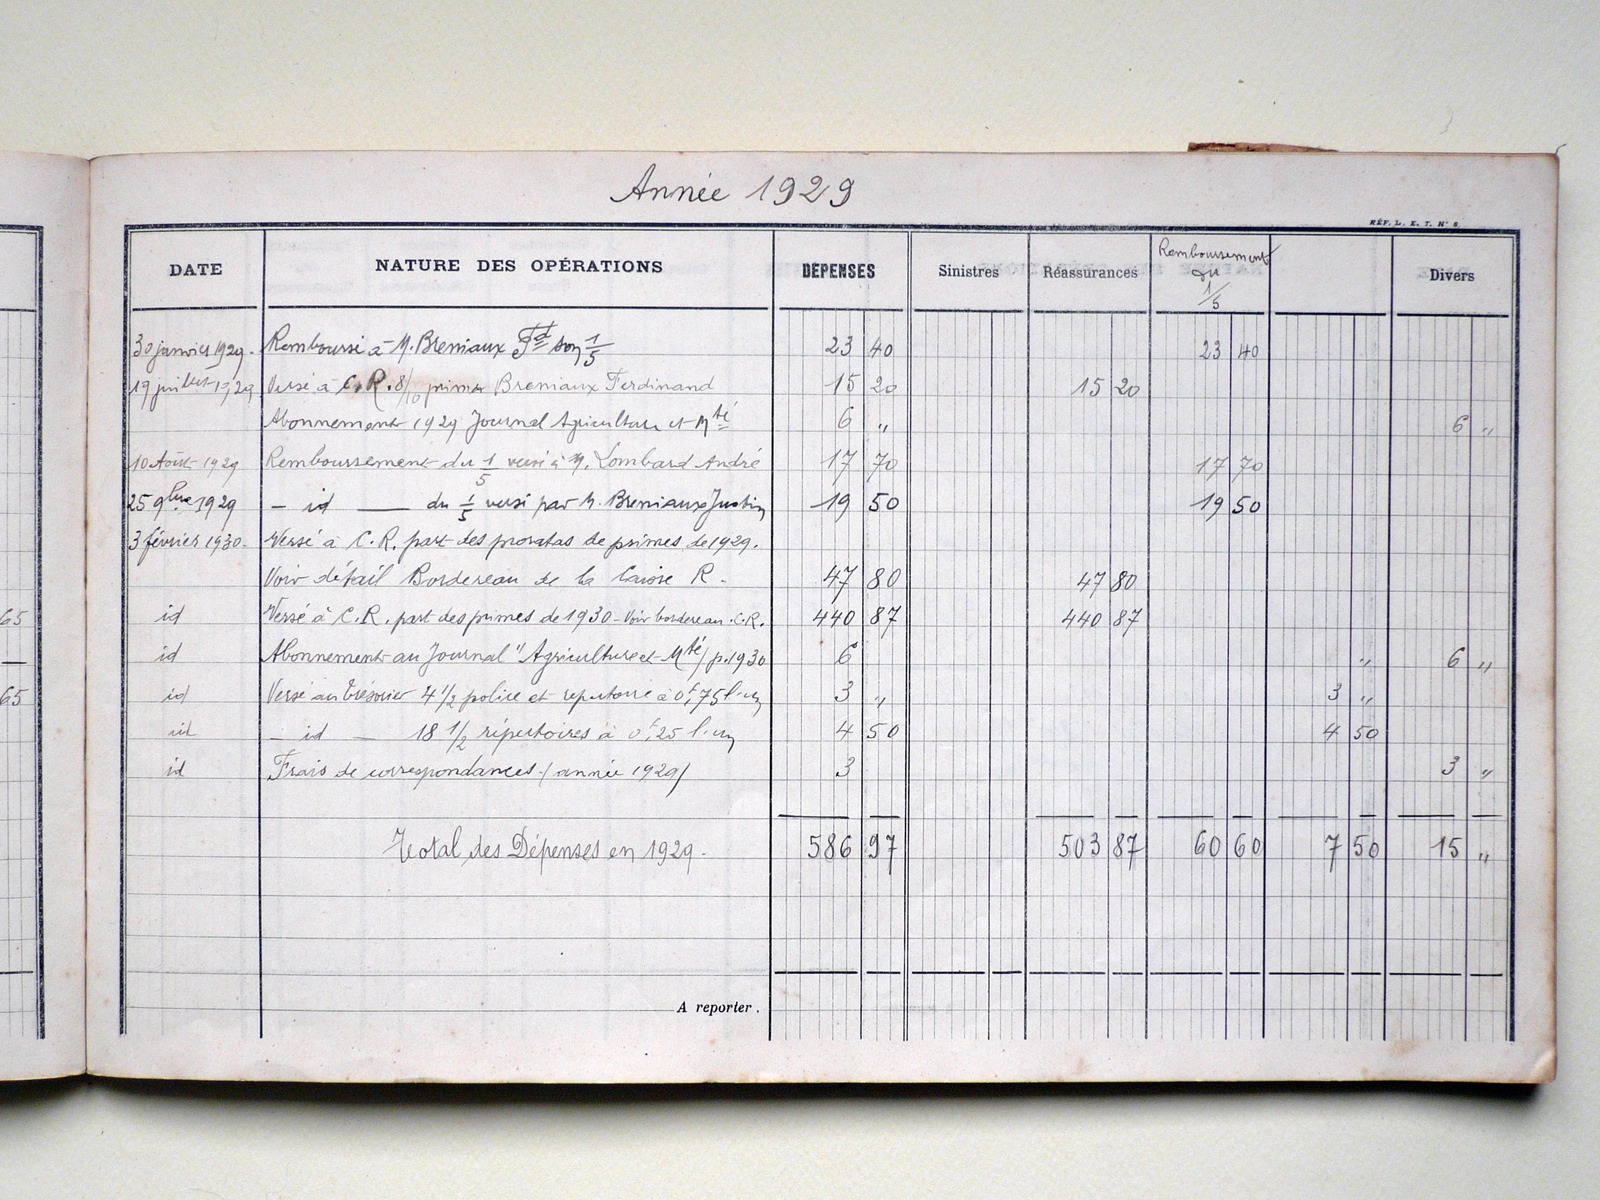 Année 1929
RÉF. L. E. T. N° 8.
DATE NATURE DES OPÉRATIONS DÉPENSES Sinistres Réassurances Remboursement du 1/5 Divers
30 janvier 1929. Remboursé à M. Breniaux Fd son 1/5 23 40 23 40
19 juillet 1929 Versé à C.R. 8/10 prime Breniaux Ferdinand 15 20 15 20
Abonnement 1929 Journal Agriculture et Mté 6 " 6 "
10 Août 1929 Remboursement du 1/5 versé à M. Lombard André 17 70 17 70
25 9bre 1929 - id — du 1/5 versé par M. Breniaux Justin 19 50 19 50
3 février 1930. Versé à C.R. part des proratas de primes de 1929.
Voir détail Bordereau de la Caisse R. 47 80 47 80
65 id Versé à C.R. part des primes de 1930 - Voir bordereau C.R. 440 87 440 87
id Abonnement au Journal "Agriculture et Mté / p. 1930 6 " 6 "
65 id Versé au Trésorier 4 1/2 police et repertoire à 0f,75 l'un 3 " 3 "
id - id - 18 1/2 répertoires à 0f,25 l'un 4 50 4 50
id Frais de correspondances (année 1929) 3 3 "
Total des Dépenses en 1929. 586 97 503 87 60 60 7 50 15 "
A reporter.